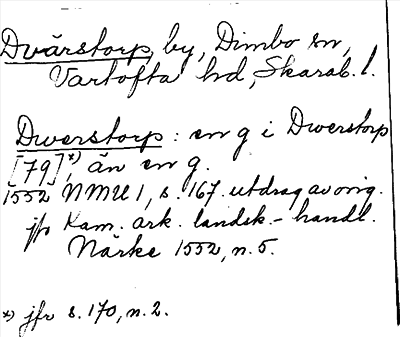 Dvärstorp, by, Dimbo sn,
Vartofta hd, Skarab. l.
Dwerstorp : en g i Dwerstorp
[79]*), än en g.
1552 NMU 1, s. 167. utdrag av orig.
jfr Kam. ark. landsk.-handl.
Närke 1552, n. 5.
*) jfr s. 170, n. 2.